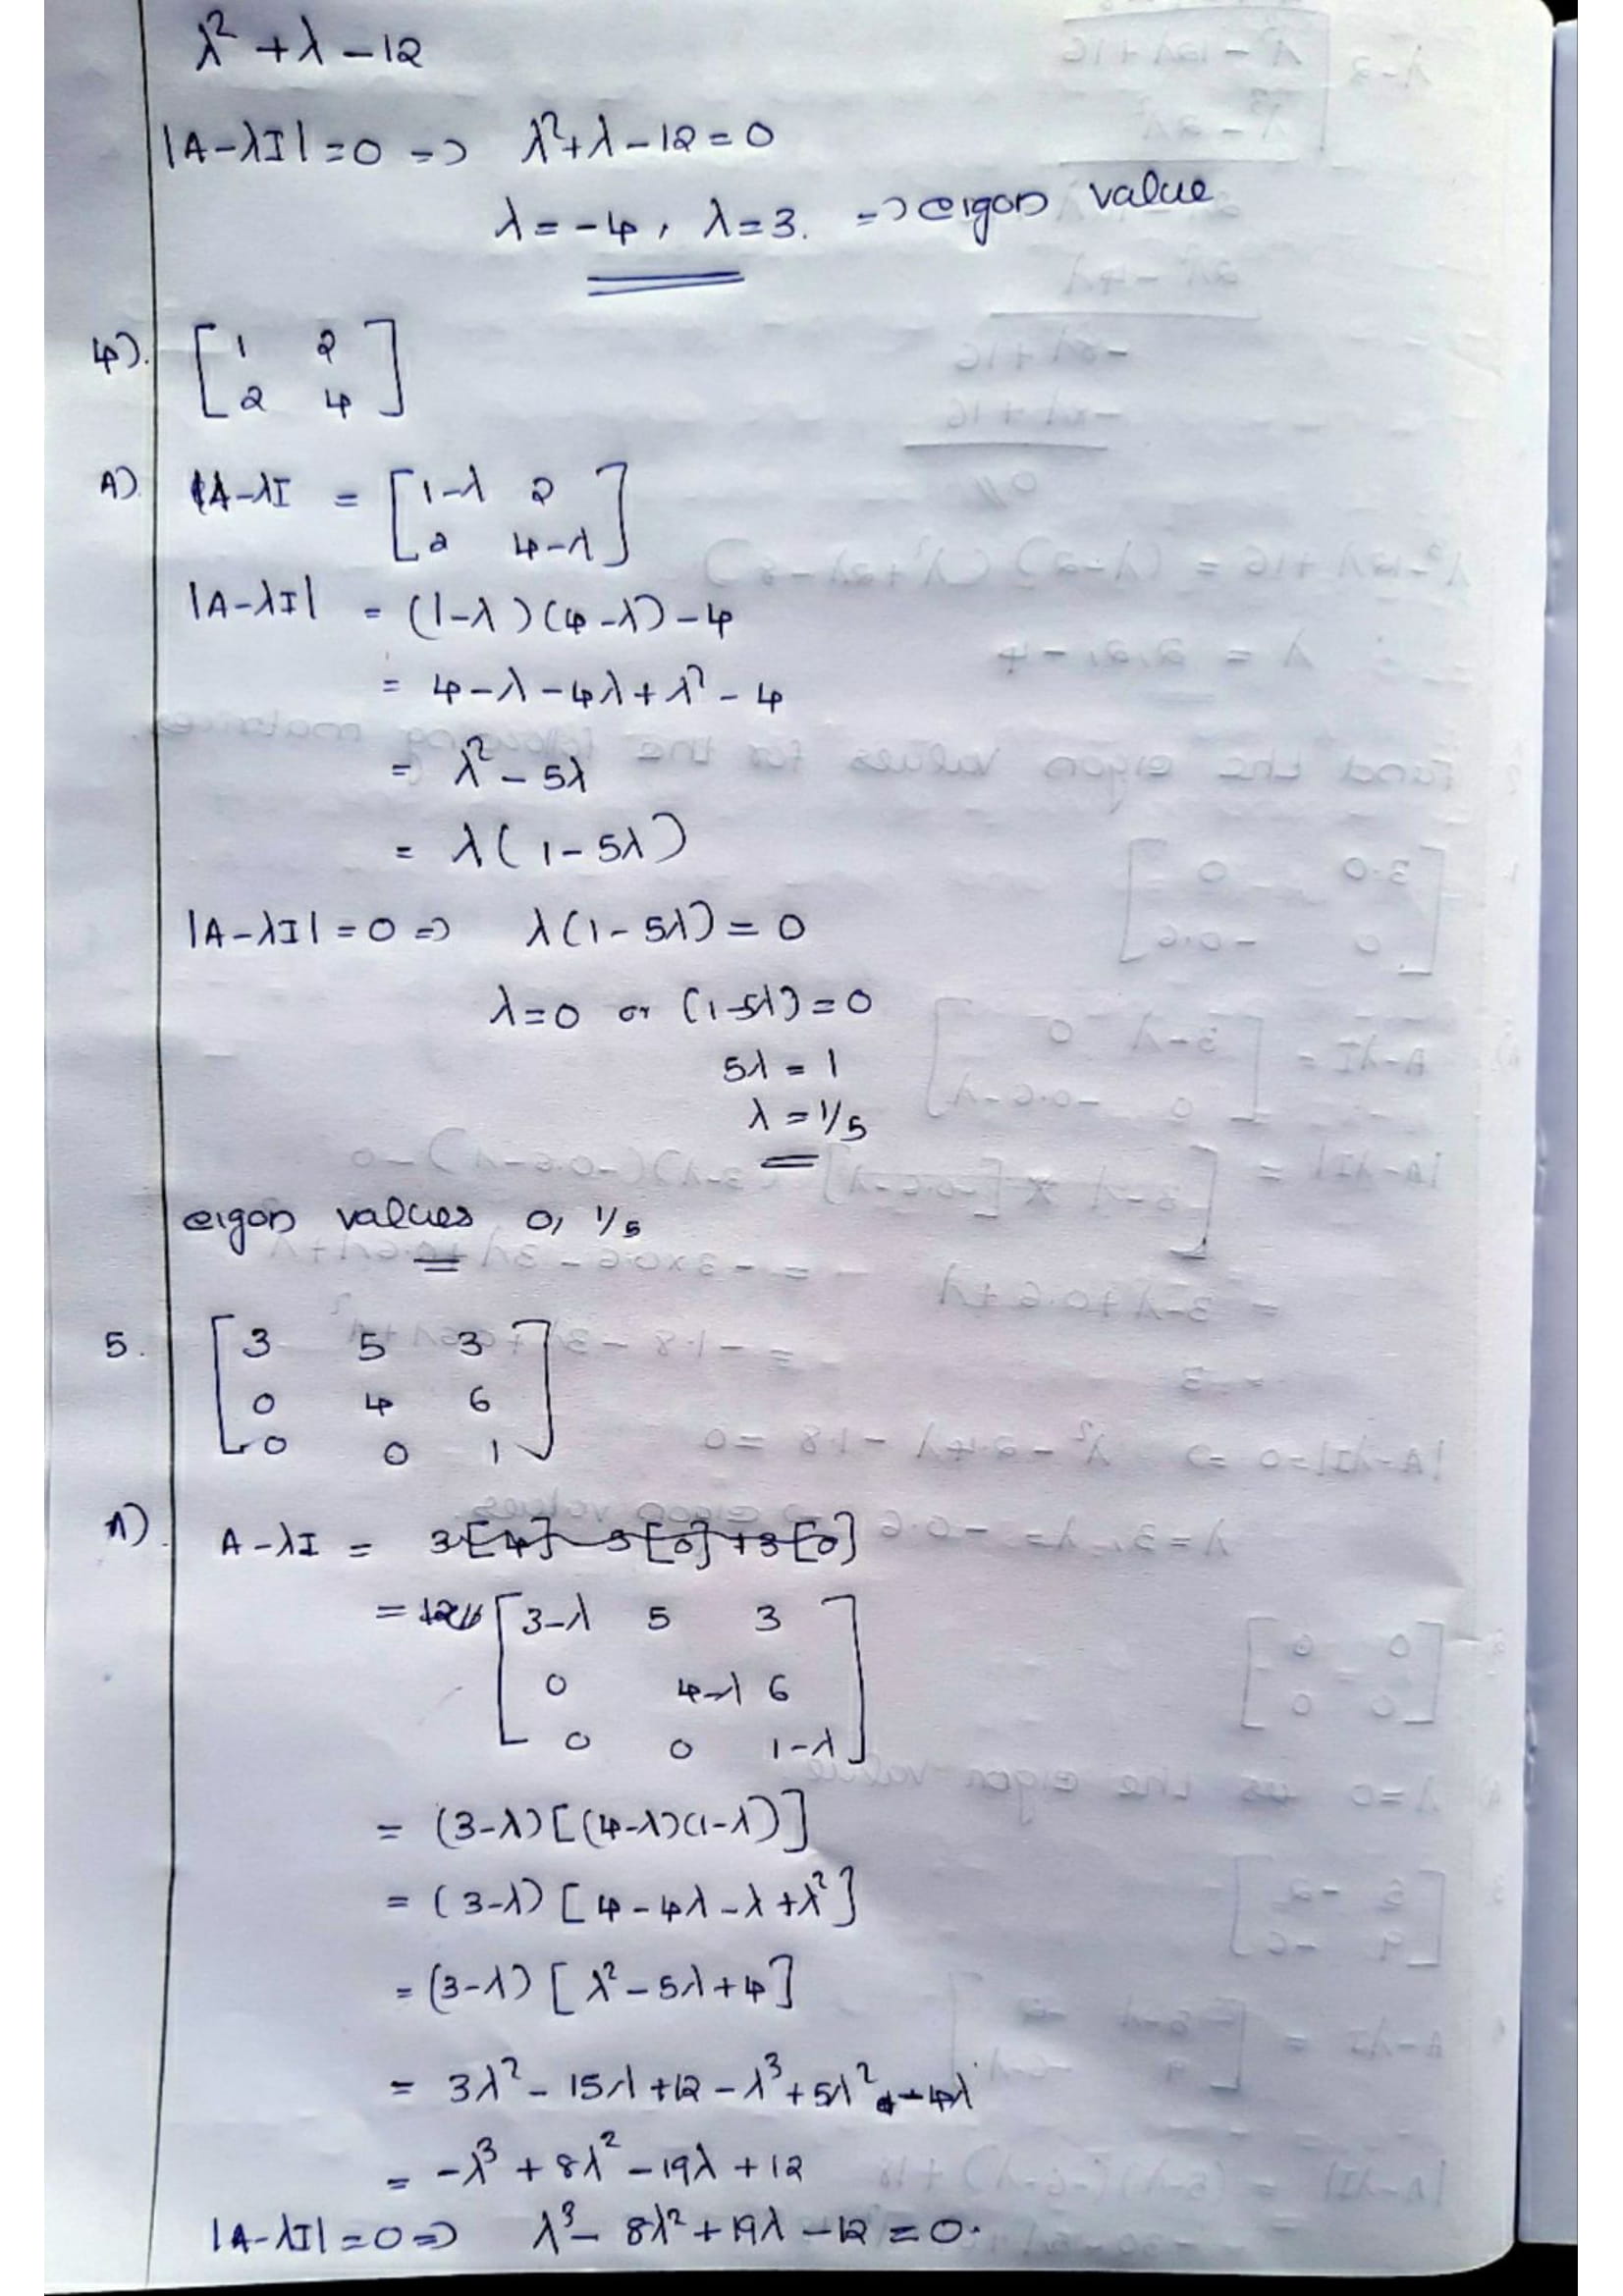 λ² + λ - 12
|A-λI| = 0 => λ² + λ - 12 = 0
λ = -4, λ = 3. => eigon value
4). [1 2
2 4]
A) A-λI = [1-λ 2
2 4-λ]
|A-λI| = (1-λ)(4-λ) - 4
= 4 - λ - 4λ + λ² - 4
= λ² - 5λ
= λ(1 - 5λ)
|A-λI| = 0 => λ(1 - 5λ) = 0
λ = 0 or (1-5λ) = 0
5λ = 1
λ = 1/5
eigon values 0, 1/5
5. [3 5 3
0 4 6
0 0 1]
A) A-λI = 3[4] - 5[0] + 3[0]
= 12 [3-λ 5 3
0 4-λ 6
0 0 1-λ]
= (3-λ)[(4-λ)(1-λ)]
= (3-λ)[4 - 4λ - λ + λ²]
= (3-λ)[λ² - 5λ + 4]
= 3λ² - 15λ + 12 - λ³ + 5λ² - 4λ
= -λ³ + 8λ² - 19λ + 12
|A-λI| = 0 => λ³ - 8λ² + 19λ - 12 = 0.